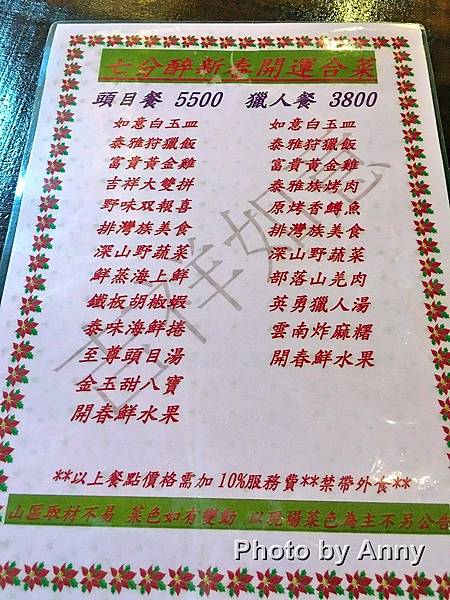 七分醉新春開運合菜
頭目餐 5500 獵人餐 3800
如意白玉皿 如意白玉皿
泰雅狩獵飯 泰雅狩獵飯
富貴黃金雞 富貴黃金雞
吉祥大雙拼 泰雅族烤肉
野味双報喜 原烤香鱒魚
排灣族美食 排灣族美食
深山野蔬菜 深山野蔬菜
鮮蒸海上鮮 部落山羌肉
鐵板胡椒蝦 英勇獵人湯
泰味海鮮捲 雲南炸麻糬
至尊頭目湯 開春鮮水果
金玉甜八寶
開春鮮水果
吉祥如意
**以上餐點價格需加 10%服務費**禁帶外食**
山區取材不易 菜色如有變動 以現場菜色為主不另公告
Photo by Anny